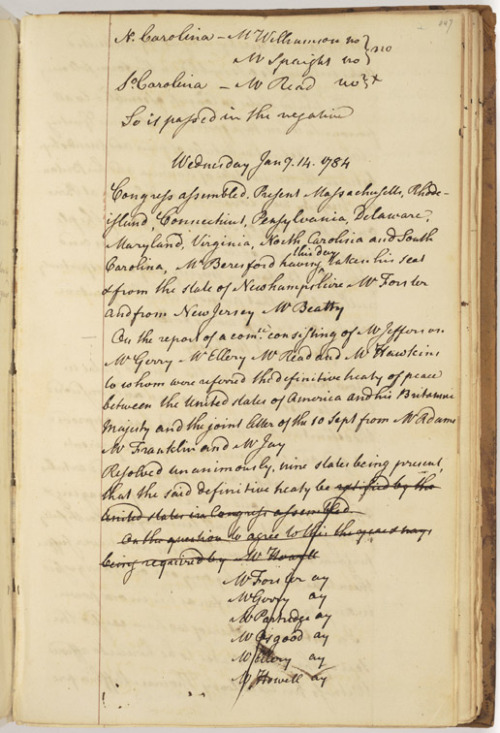 N. Carolina – Mr Williamson no } no
Mr Spaight no
So Carolina – Mr Read no } x
So it passed in the negative
Wednesday Jany. 14. 1784
Congress assembled. Present Massachusetts, Rhode-
island, Connecticut, Pensylvania, Delaware,
Maryland, Virginia, North Carolina and South
Carolina, Mr Beresford having this day taken his seat
& from the state of Newhampshire Mr Forster
and from New Jersey Mr Beatty
On the report of a comee. consisting of Mr Jefferson
Mr Gerry Mr Ellery Mr Read and Mr Hawkins
to whom were referred the definitive treaty of peace
between the United states of America and his Britannic
Majesty and the joint letter of the 10 Sept from Mr Adams
Mr Franklin and Mr Jay
Resolved unanimously, nine states being present,
that the said definitive treaty be ratified by the
united states in Congress assembled.
On the question to agree to this the yeas & nays
being required by Mr Howell
Mr Forster ay
Mr Gerry ay
Mr Partridge ay
Mr Osgood ay
Mr Ellery ay
Mr Howell ay